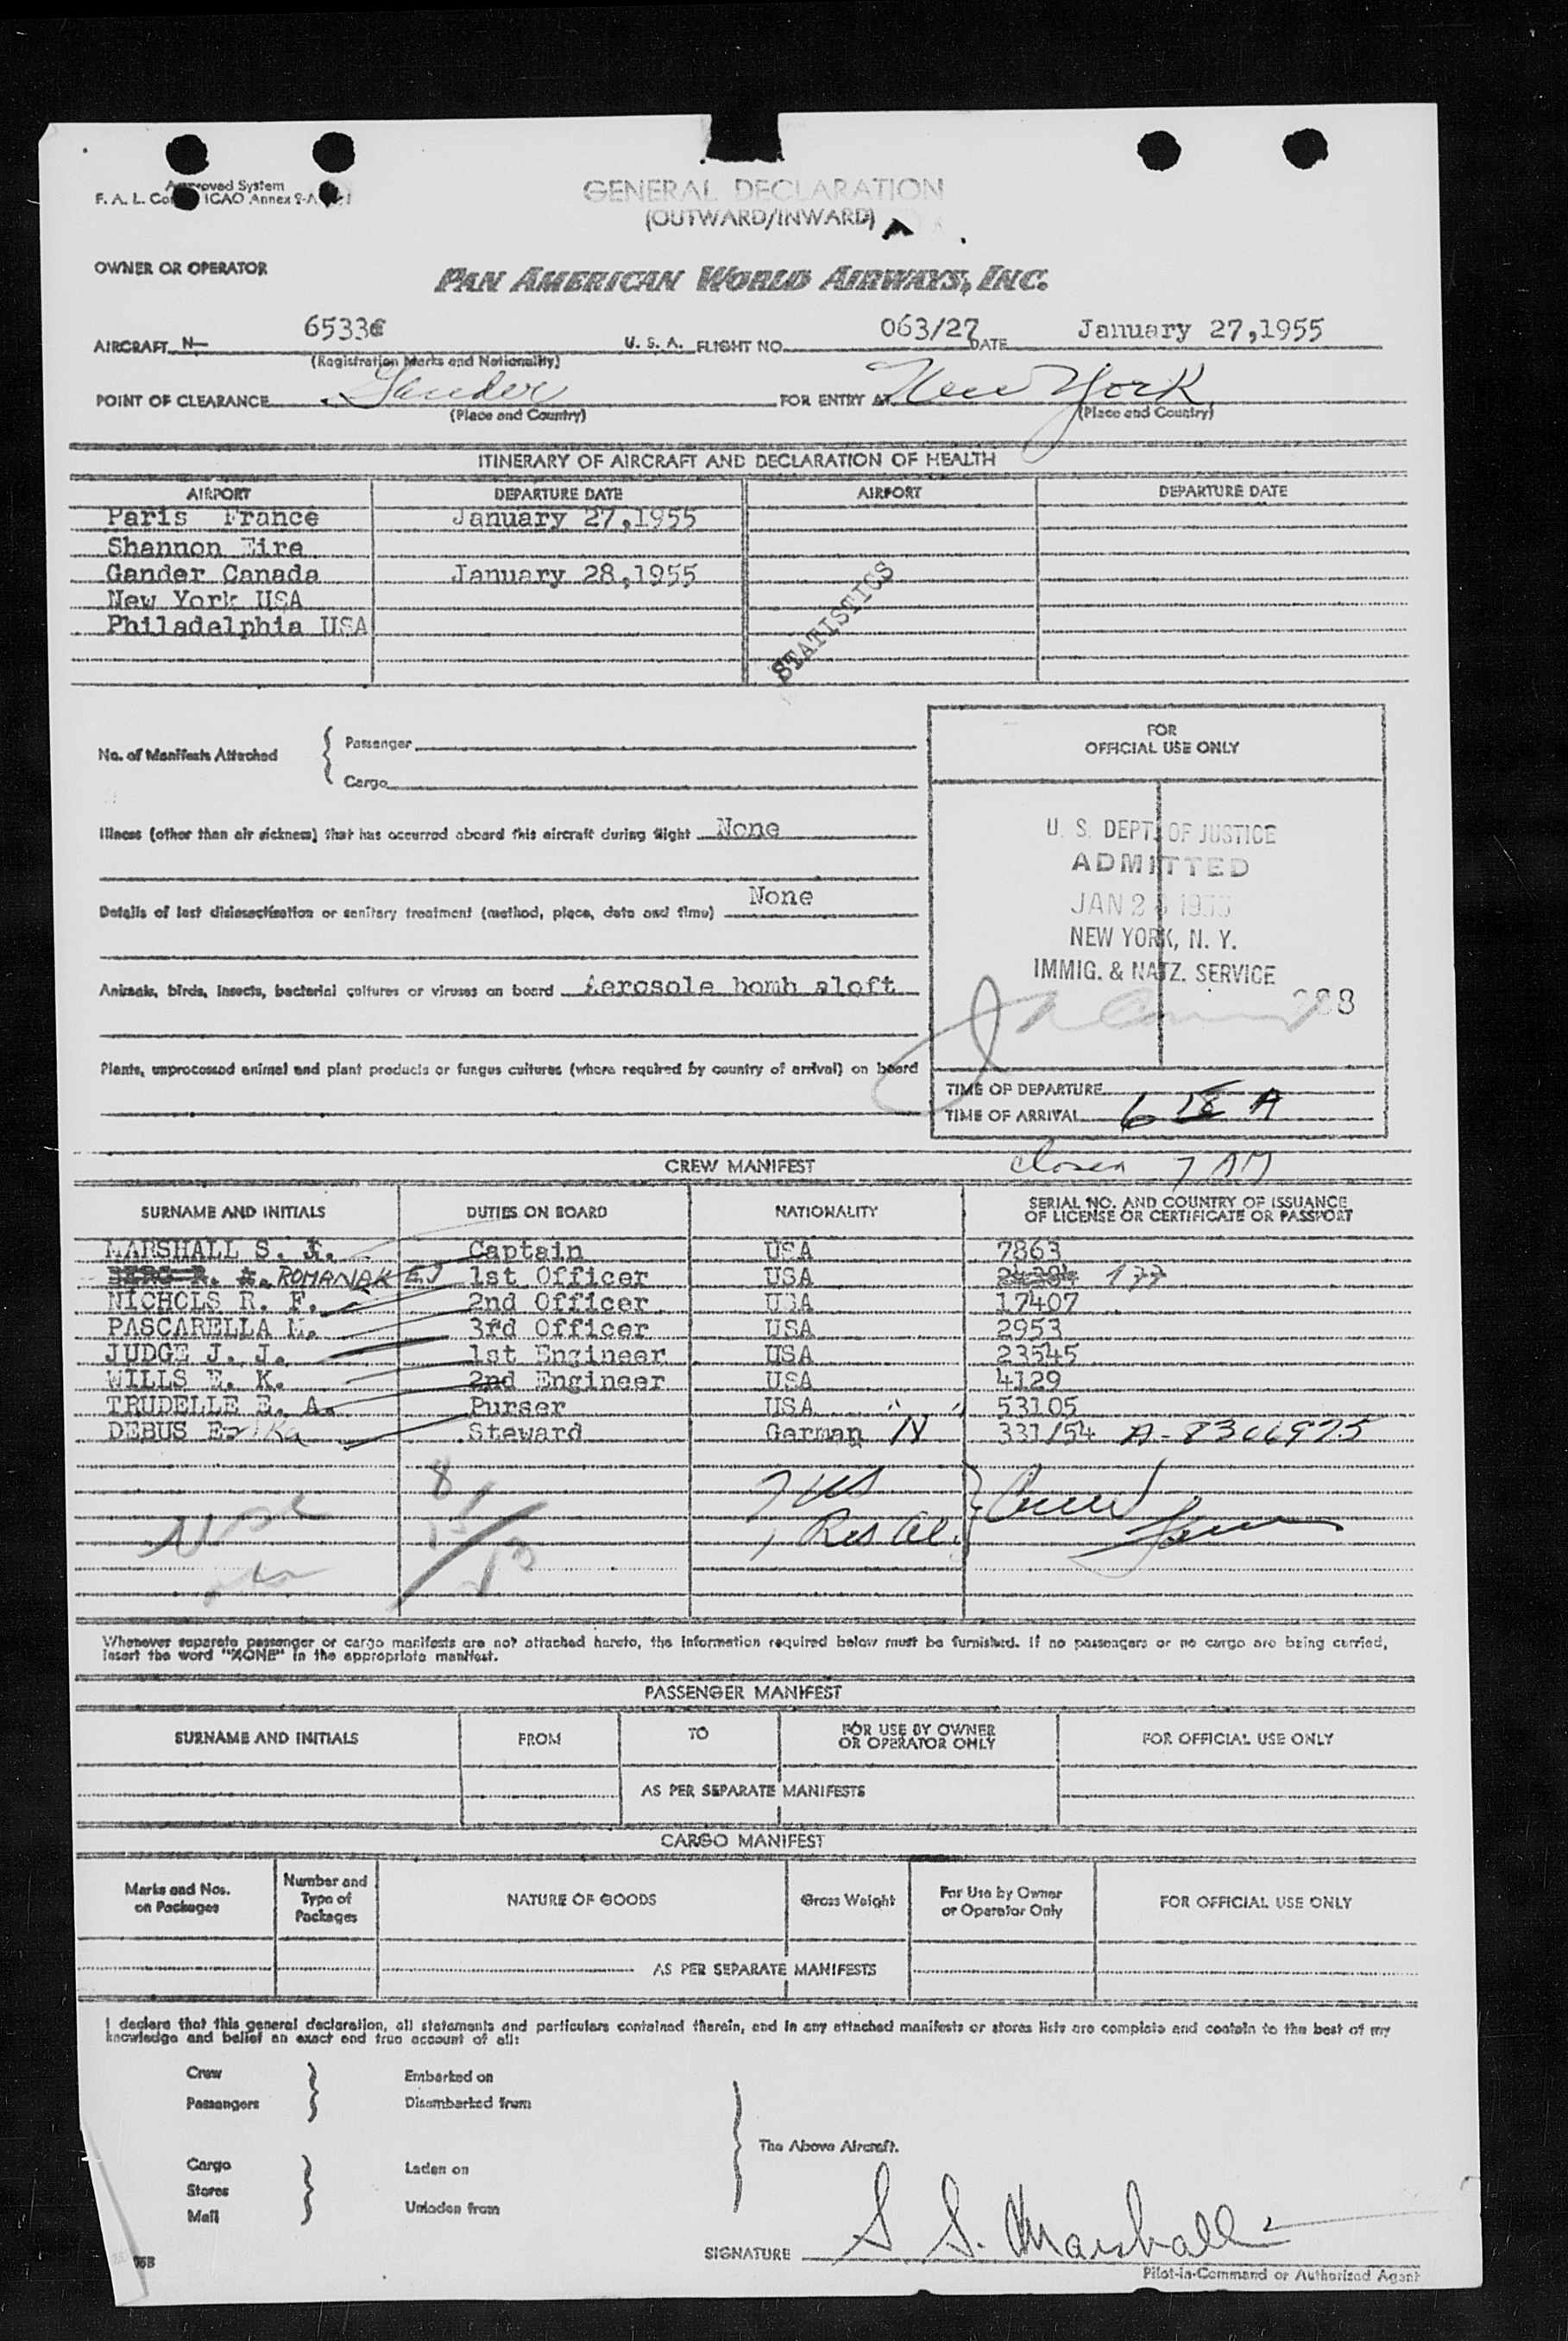 Approved System
F. A. L. ICAO Annex 9-A
GENERAL DECLARATION
(OUTWARD/INWARD)
OWNER OR OPERATOR
PAN AMERICAN WORLD AIRWAYS, INC.
AIRCRAFT N- 6533C U. S. A. FLIGHT NO. 063/27 DATE January 27,1955
(Registration Marks and Nationality)
POINT OF CLEARANCE Gander FOR ENTRY AT New York
(Place and Country) (Place and Country)
ITINERARY OF AIRCRAFT AND DECLARATION OF HEALTH
AIRPORT DEPARTURE DATE AIRPORT DEPARTURE DATE
Paris France January 27,1955
Shannon Eire
Gander Canada January 28,1955
New York USA
Philadelphia USA
STATISTICS
No. of Manifests Attached { Passenger
Cargo
FOR
OFFICIAL USE ONLY
Illness (other than air sickness) that has occurred aboard this aircraft during flight None
Details of last disinsectization or sanitary treatment (method, place, date and time) None
Animals, birds, insects, bacterial cultures or viruses on board Aerosole bomb aloft
Plants, unprocessed animal and plant products or fungus cultures (where required by country of arrival) on board
U. S. DEPT. OF JUSTICE
ADMITTED
JAN 28 1955
NEW YORK, N. Y.
IMMIG. & NATZ. SERVICE
TIME OF DEPARTURE
TIME OF ARRIVAL 6 18 A
closed 7 AM
CREW MANIFEST
SURNAME AND INITIALS DUTIES ON BOARD NATIONALITY SERIAL NO. AND COUNTRY OF ISSUANCE
OF LICENSE OR CERTIFICATE OR PASSPORT
MARSHALL S. Captain USA 7863
ROMANAK E.J 1st Officer USA 177
NICHOLS R. F. 2nd Officer USA 17407
PASCARELLA M. 3rd Officer USA 2953
JUDGE J. J. 1st Engineer USA 23545
WILLS E. K. 2nd Engineer USA 4129
TRUDELLE E. A. Purser USA 53105
DEBUS Erika Steward German N 331/54 A-8306975
8
7 US
1 Res Al.
Whenever separate passenger or cargo manifests are not attached hereto, the information required below must be furnished. If no passengers or no cargo are being carried,
insert the word "NONE" in the appropriate manifest.
PASSENGER MANIFEST
SURNAME AND INITIALS FROM TO FOR USE BY OWNER
OR OPERATOR ONLY FOR OFFICIAL USE ONLY
AS PER SEPARATE MANIFESTS
CARGO MANIFEST
Marks and Nos.
on Packages Number and
Type of
Packages NATURE OF GOODS Gross Weight For Use by Owner
or Operator Only FOR OFFICIAL USE ONLY
AS PER SEPARATE MANIFESTS
I declare that this general declaration, all statements and particulars contained therein, and in any attached manifests or stores lists are complete and contain to the best of my
knowledge and belief an exact and true account of all:
Crew Embarked on
Passengers Disembarked from
The Above Aircraft.
Cargo Laden on
Stores
Mail Unladen from
SIGNATURE S S. Marshall
Pilot-in-Command or Authorized Agent